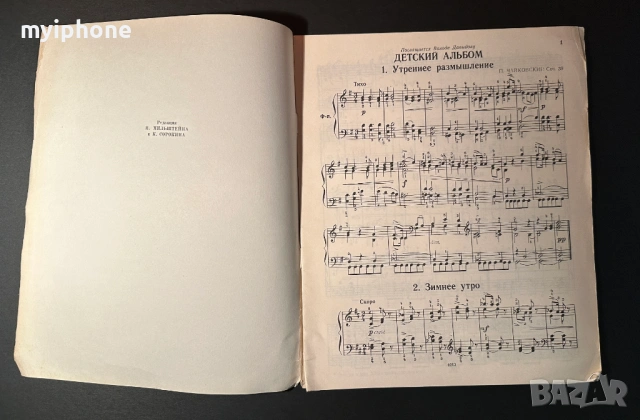 myiphone
Редакция
Я. МИЛЬШТЕЙНА
и К. СОРОКИНА
Посвящается Володе Давыдову
1
ДЕТСКИЙ АЛЬБОМ
1. Утреннее размышление
П. ЧАЙКОВСКИЙ. Соч. 39
Тихо
Ф-п.
p
f
p
pp
2. Зимнее утро
Скоро
BAZAR